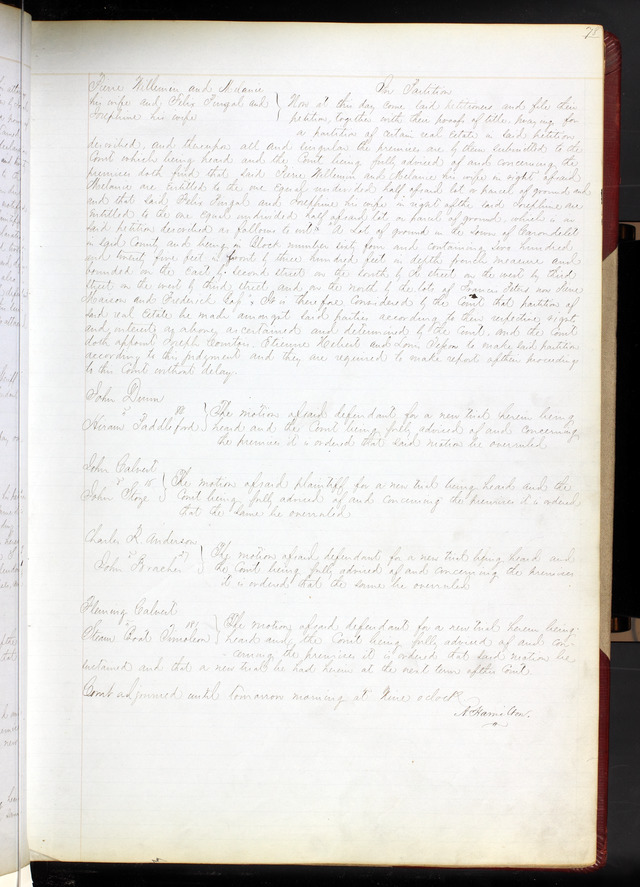 71
Pierre Willemin and Melanie
his wife and Felix Pingal and
Josephine his wife
In Partition
Now at this day come said petitioners and file their
petition, together with their proofs of title praying for
a partition of certain real estate in said petition
described, and thereupon all and singular the premises are by them submitted to the
Court which being heard and the Court being fully advised of and concerning the
premises doth find that said Pierre Willemin and Melanie his wife in right afsaid
Melanie are entitled to the one equal undivided half afsaid lot or parcel of ground and
and that said Felix Pingal and Josephine his wife in right of the said Josephine are
entitled to the one equal undivided half afsaid lot or parcel of ground, which is in
said petition described as follows to wit: A lot of ground in the Town of Carondelet
in said County and being in Block number sixty four and containing Two hundred
and twenty five feet in front by three hundred feet in depth french measure and
bounded on the East by Second street on the South by street on the west by third
street on the west by third street and on the north by the lots of Francis and
and Frederick It is therefore considered by the Court that partition of
said real estate be made amongst said parties according to their respective rights
and interests as above ascertained and determined by the Court, and the Court
doth appoint Joseph Etienne Hebert and Louis to make said partition
according to this judgment and they are required to make report of their proceedings
to this Court without delay.
John Dunn
vs
Hiram Saddleford
The motion afsaid defendant for a new trial herein being
heard and the Court being fully advised of and concerning
the premises it is ordered that said motion be overruled
John Calvert
vs
John Stoye
The motion afsaid plaintiff for a new trial being heard and the
Court being fully advised of and concerning the premises it is ordered
that the same be overruled
Charles R. Anderson
vs
John Bracher
The motion afsaid defendant for a new trial being heard and
the Court being fully advised of and concerning the premises
it is ordered that the same be overruled
Fleming Calvert
vs
Steam Boat Timoleon
The motion afsaid defendant for a new trial herein being
heard and the Court being fully advised of and con-
cerning the premises it is ordered that said motion be
sustained and that a new trial be had herein at the next term of this Court
Court adjourned until tomorrow morning at Nine oclock
A Hamilton.